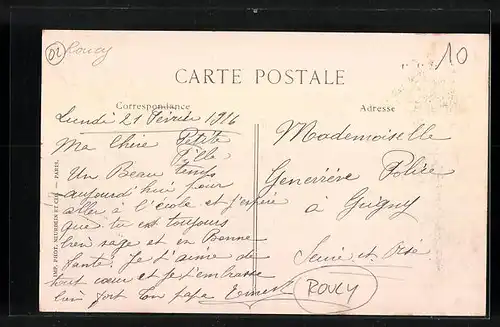 02 Roucy
10
CARTE POSTALE
Correspondance
Adresse
Lundi 21 Février 1916
Ma Chère Petite
Fille
Un Beau temps
aujourd'hui pour
aller à l'école et j'espère
que tu est toujours
bien sage et en Bonne
Santé. Je t'aime de
tout cœur et je t'embrasse
bien fort Ton papa Ernest
Mademoiselle
Geneviève
à Guigny
Seine et Oise
ROUCY
IMP. PHOT. NEURDEIN ET CIE. — PARIS.